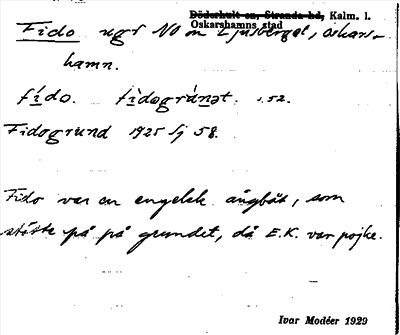 Döderhult sn, Stranda hd, Kalm. l.
Oskarshamns stad
Fido ugr NO om Ljusberget, Oskars-
hamn.
fído. fìdogrúnət. s. 52.
Fidogrund 1925 Sj 58.
Fido var en engelsk ångbåt, som
stötte på på grundet, då E.K. var pojke.
Ivar Modéer 1929